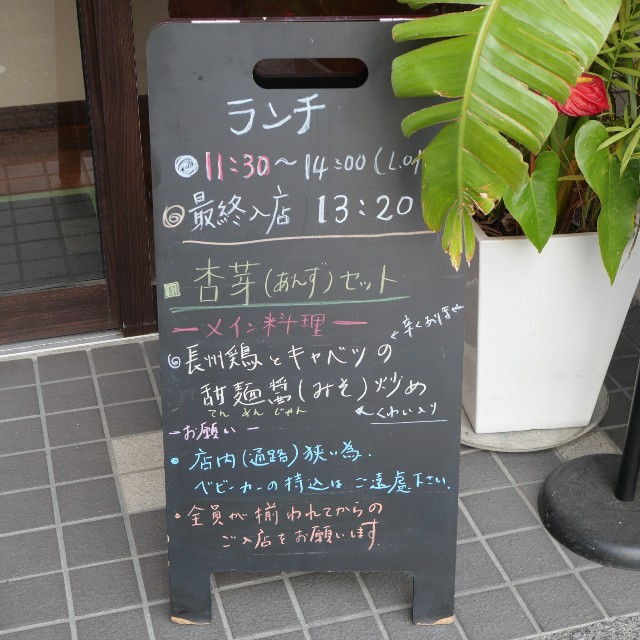 ランチ
11:30～14:00(L.O
最終入店 13:20
杏芽(あんず)セット
ーメイン料理ー
辛くありません
長州鶏とキャベツの
甜麺醤(みそ)炒め
てんめんじゃん
ーお願いー
・店内(通路)狭い為、
ベビーカーの持込はご遠慮下さい。
・全員が揃われてからの
ご入店をお願いします